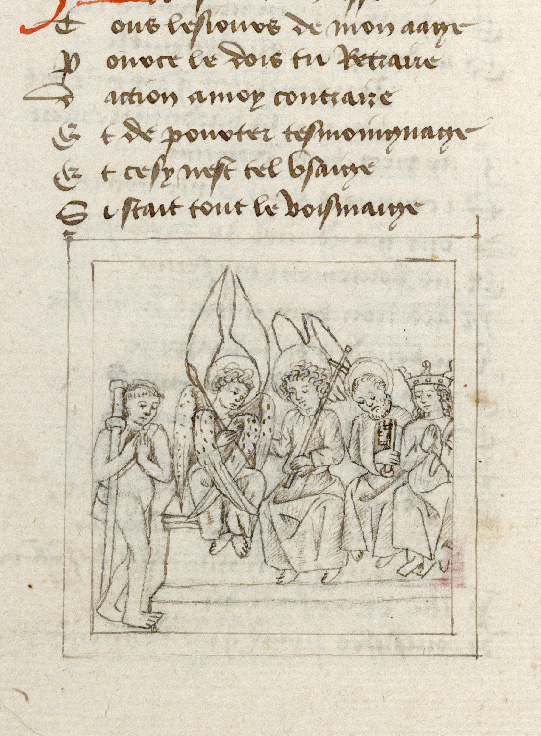 T ous les iours de mon aage
P ource le dois tu Retraire
D action a moy contraire
E t de pouoter tesmoingnaige
E t cesy nest tel vsaige
S i scait tout le voisinaige